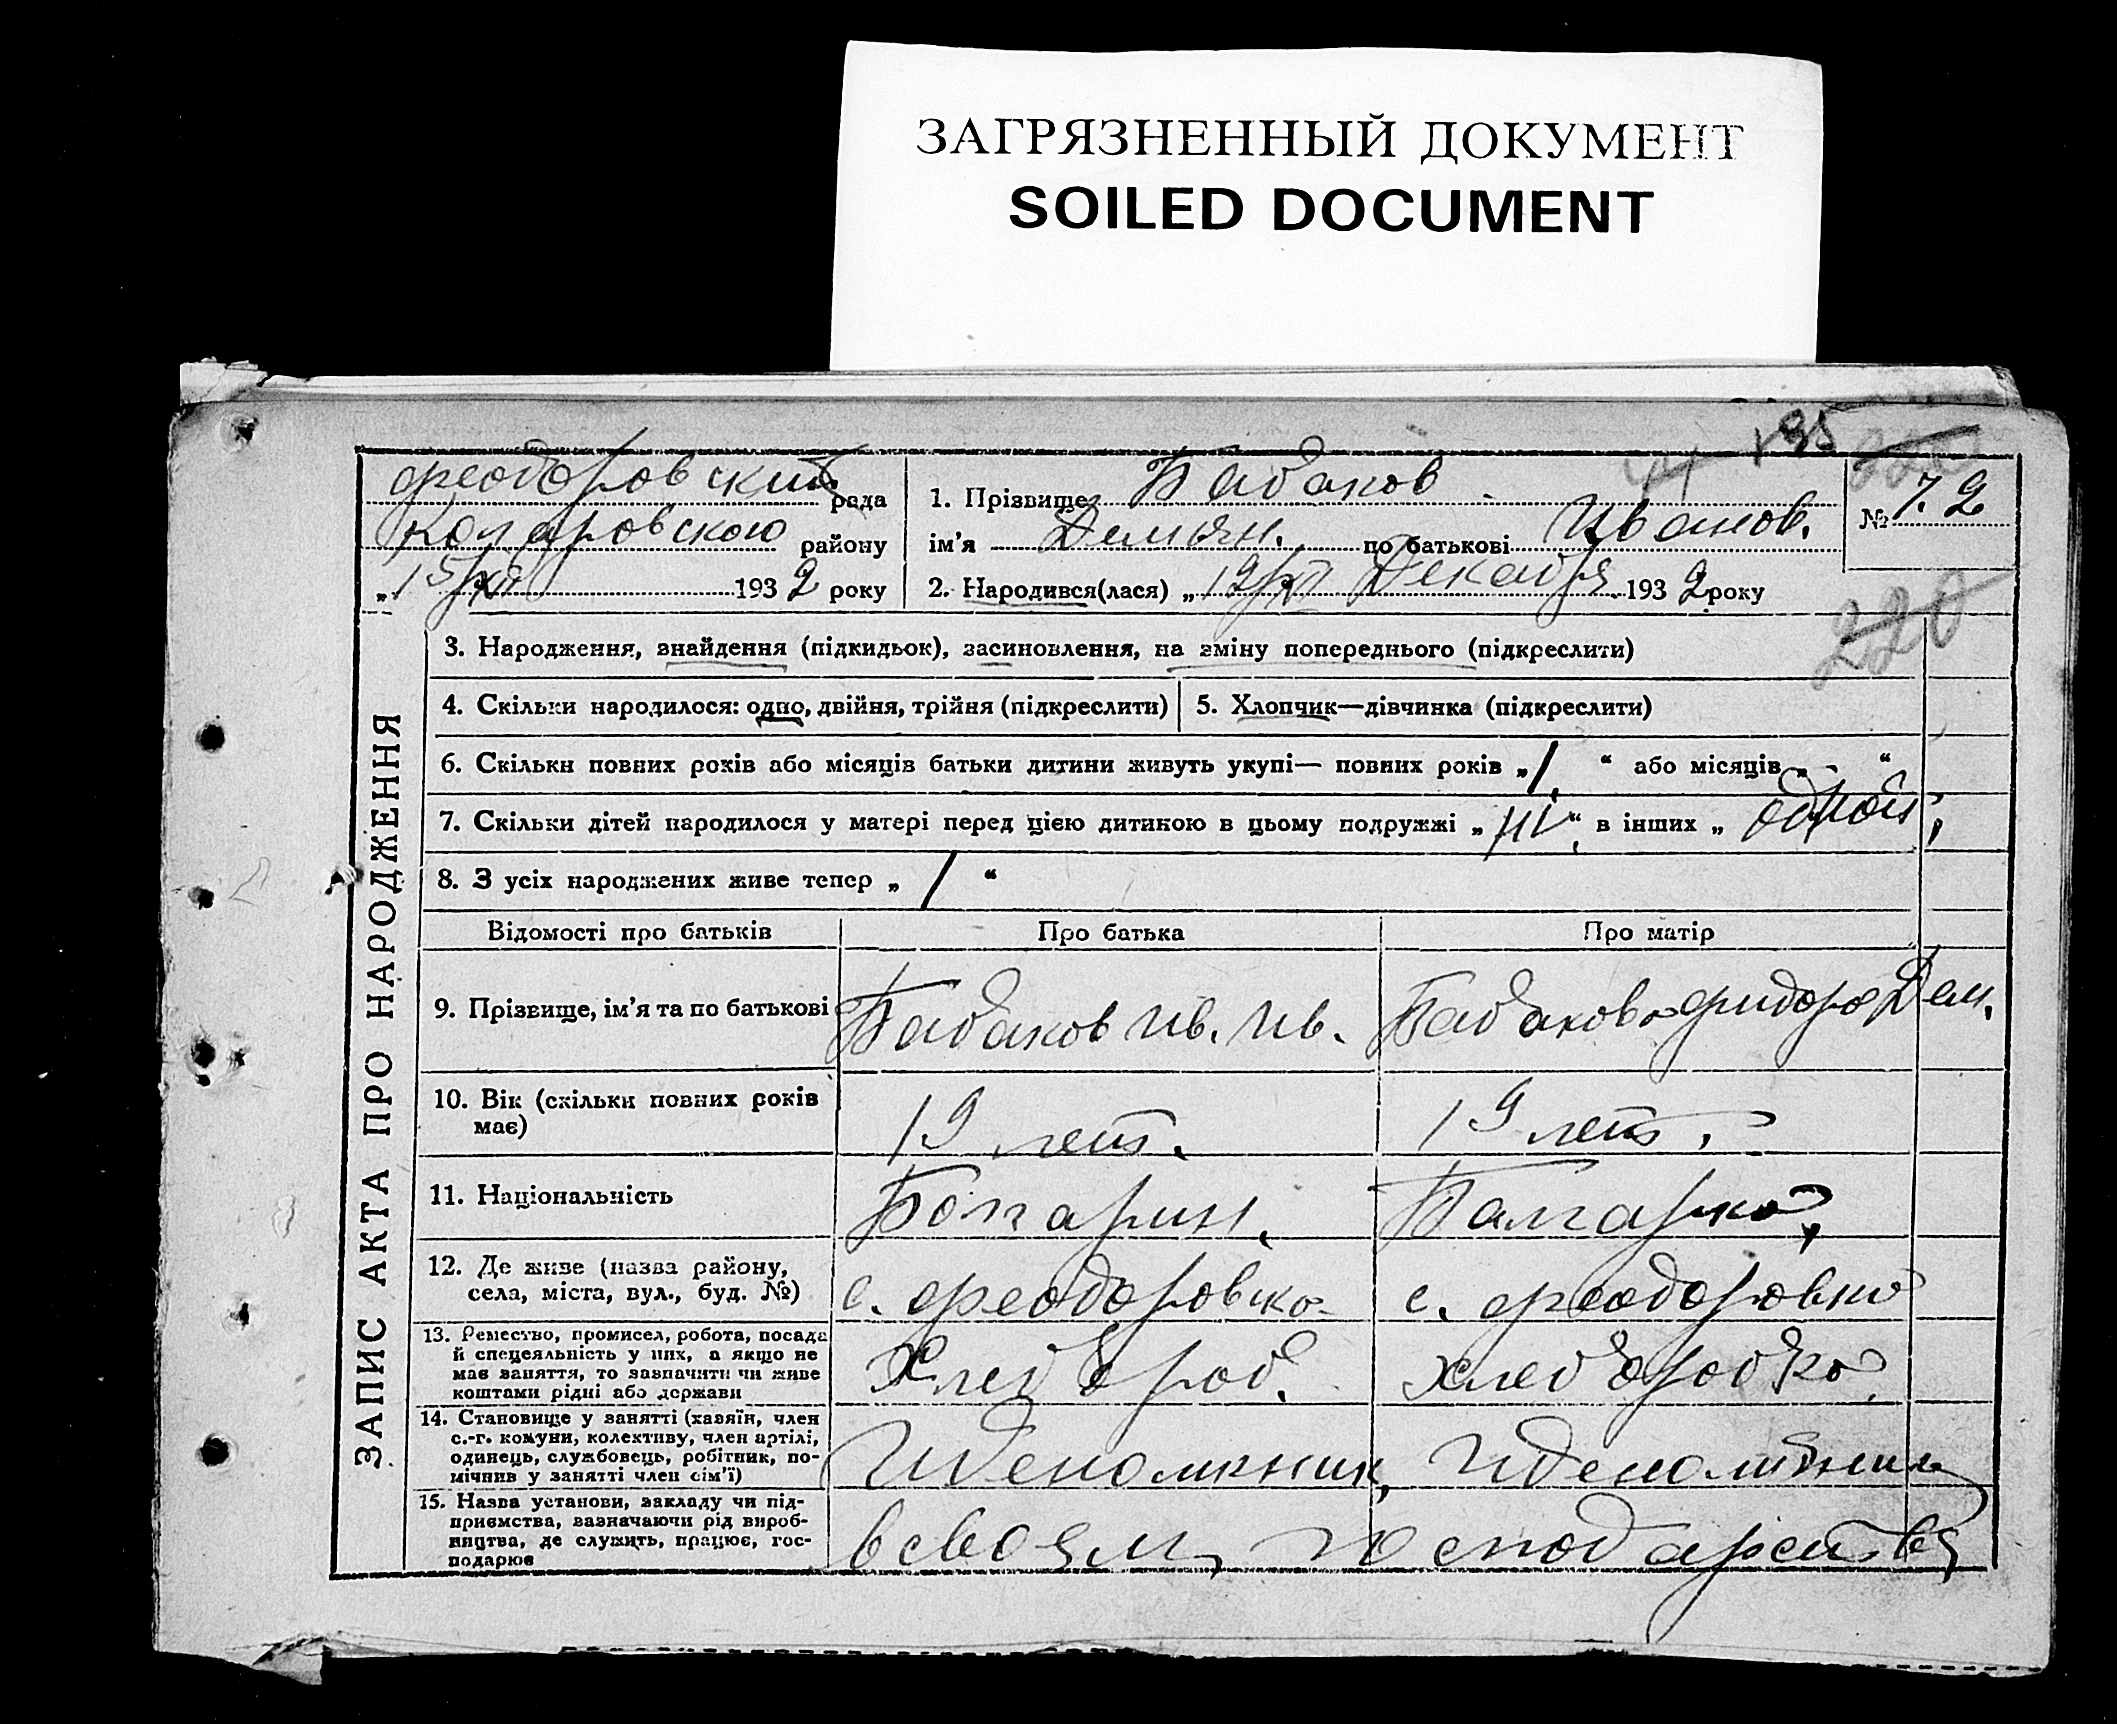 ЗАГРЯЗНЕННЫЙ ДОКУМЕНТ
SOILED DOCUMENT
195
№ 72
220
Феодоровский рада
Коларовского району
„15/XII 1932 року
1. Прізвище Бабаков
ім’я Демьян. по батькові Иванов.
2. Народився(лася) „12/XII Декабря 1932 року
ЗАПИС АКТА ПРО НАРОДЖЕННЯ
3. Народження, знайдення (підкидьок), засиновлення, на зміну попереднього (підкреслити)
4. Скільки народилося: одно, двійня, трійня (підкреслити)
5. Хлопчик—дівчинка (підкреслити)
6. Скільки повних років або місяців батьки дитини живуть укупі— повних років „1“ або місяців „-“
7. Скільки дітей народилося у матері перед цією дитиною в цьому подружжі „ні“, в інших „
8. З усіх народжених живе тепер „/“
Відомості про батьків Про батька Про матір
9. Прізвище, ім’я та по батькові Бабаков Ив. Ив. Бабакова Фидора Дем.
10. Вік (скільки повних років має) 19 лет. 19 лет.
11. Національність Болгарин. Балгарка,
12. Де живе (назва району, села, міста, вул., буд. №) с. Феодоровка с. Феодоровка
13. Ремество, промисел, робота, посада
й спецеяльність у них, а якщо не
має заняття, то зазначити чи живе
коштами рідні або держави
Хлебороб. хлеборобка
14. Становище у занятті (хазяїн, член
с.-г. комуни, колективу, член артілі,
одинець, службовець, робітник, по-
мічник у занятті член сім’ї)
15. Назва установи, закладу чи під-
приємства, зазначаючи рід вироб-
ництва, де служить, працює, гос-
подарює
в своям господарстве